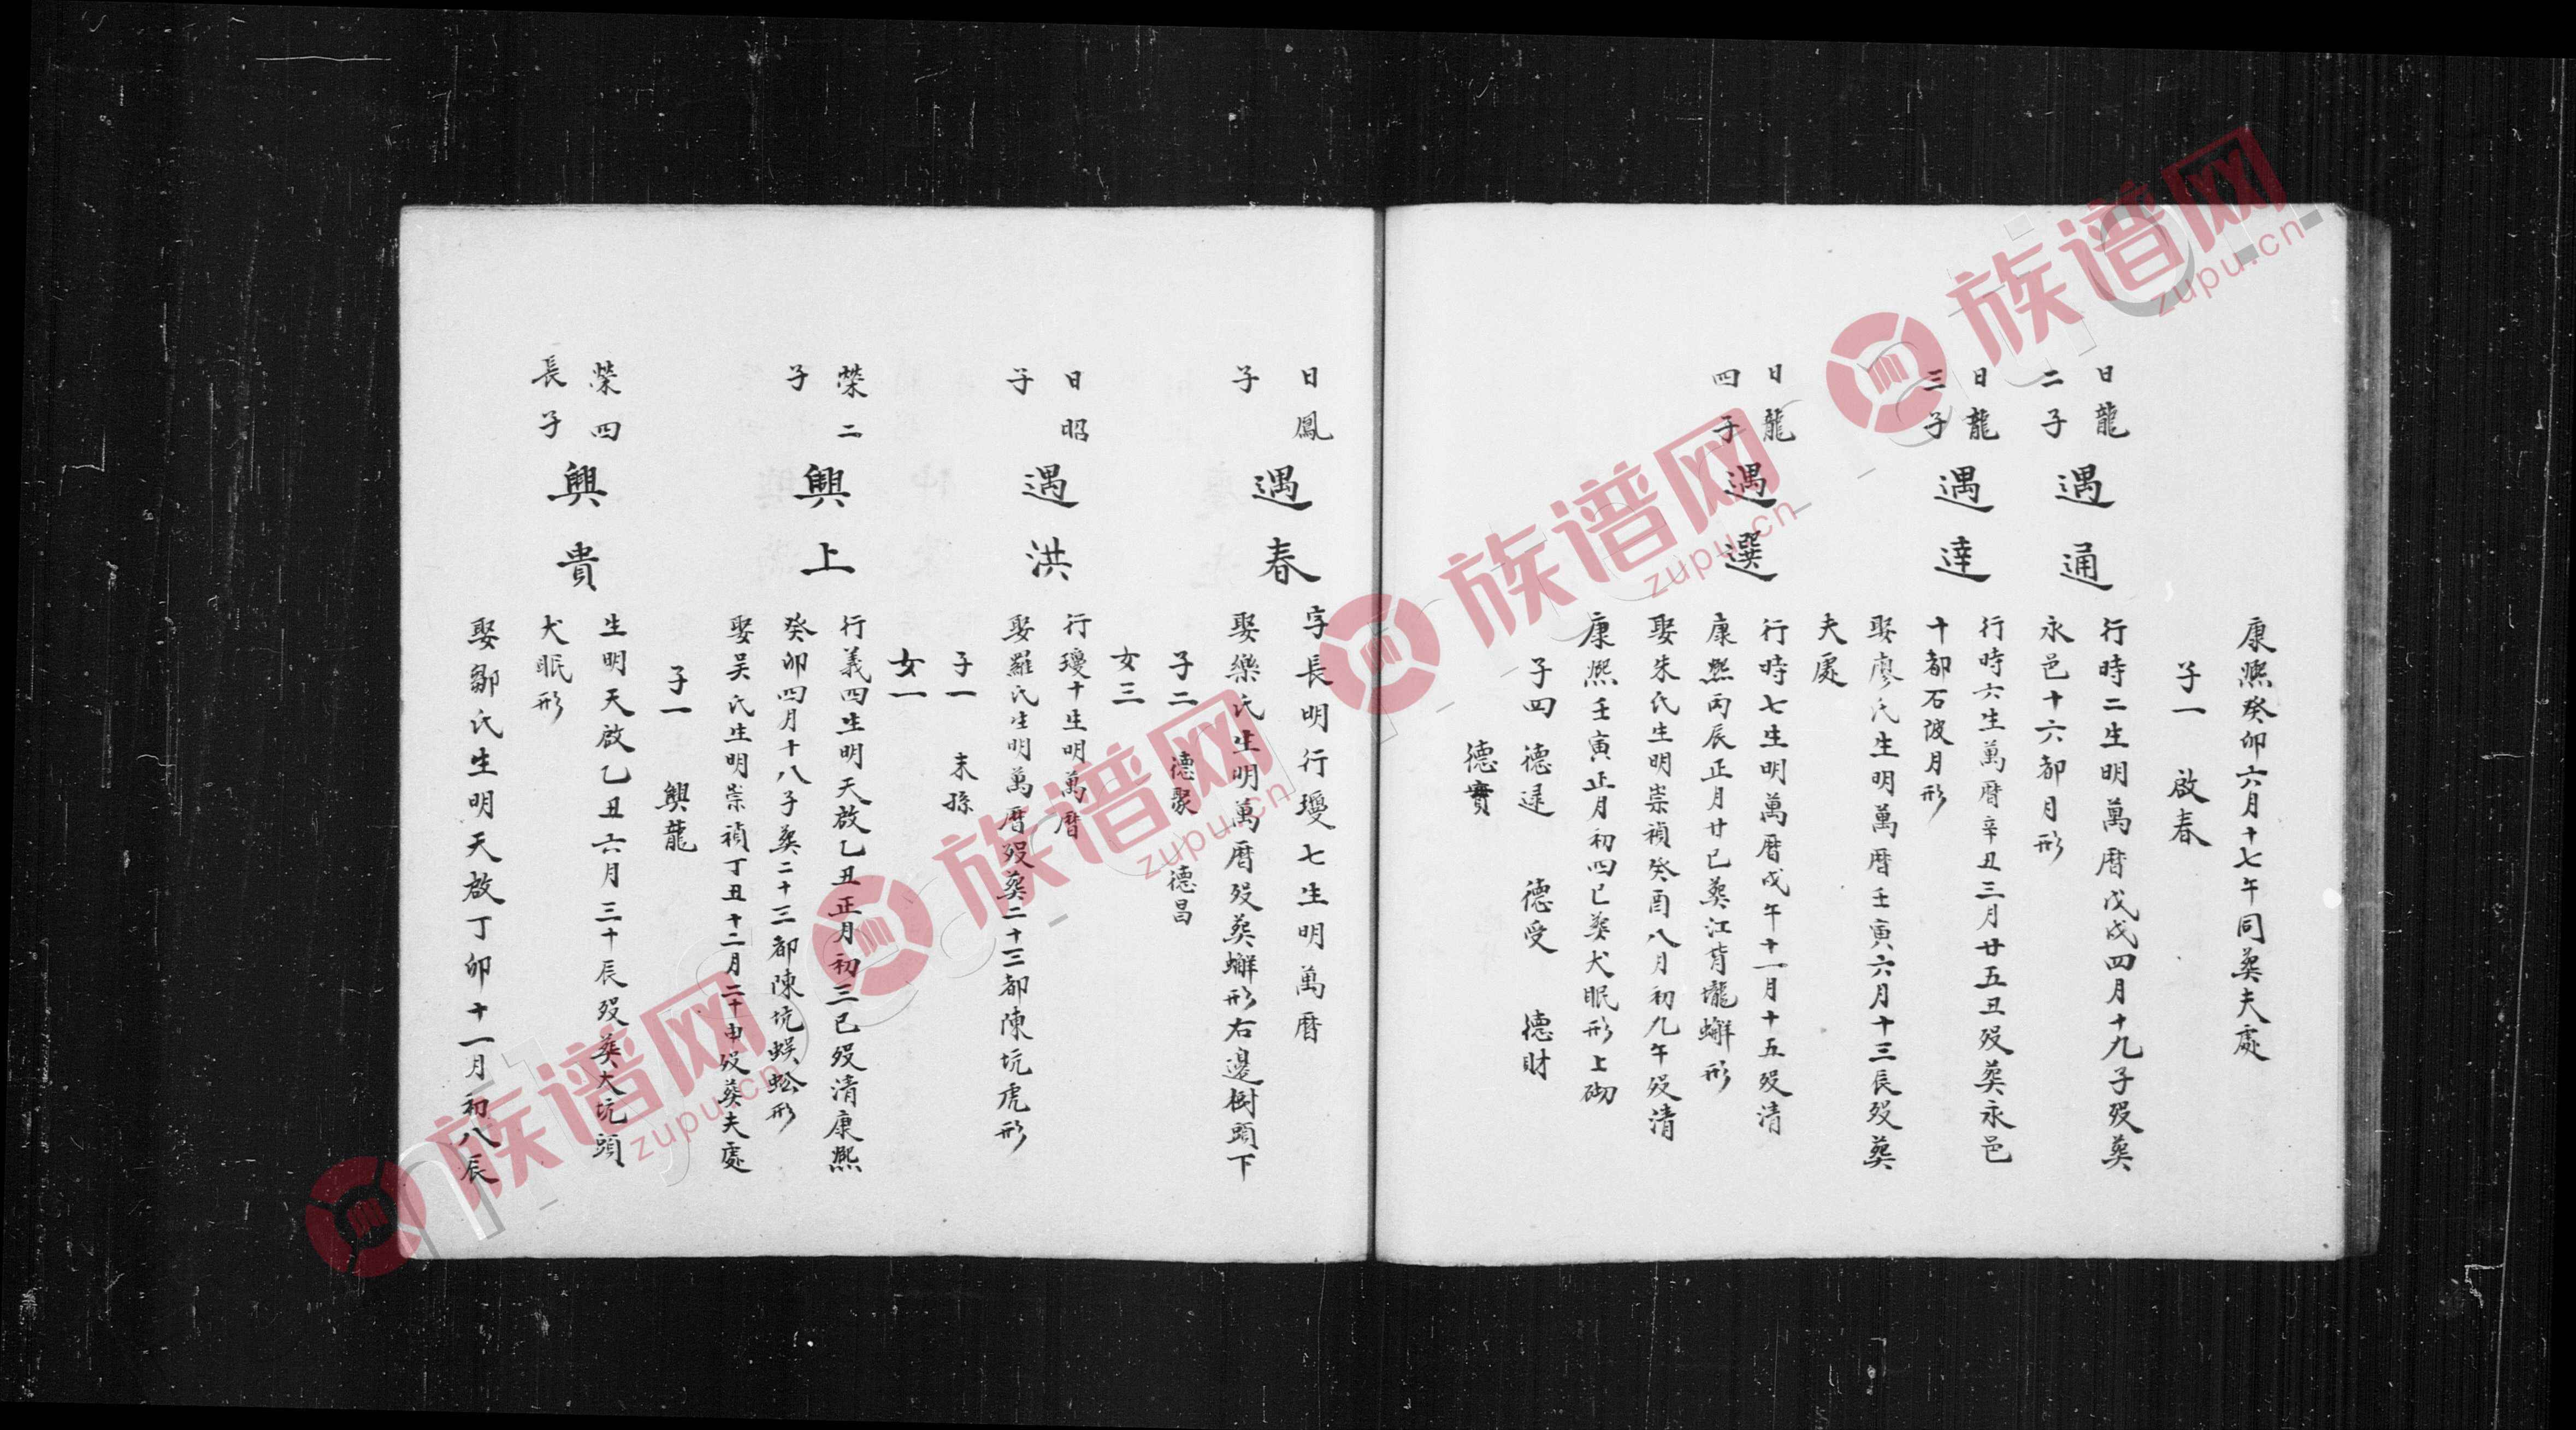 康熙癸卯六月十七午同葬夫處
子一 啟春
日龍
二子
遇通
行時二生明萬曆戊戌四月十九子歿葬
永邑十六都月形
日龍
三子
遇達
行時六生萬曆辛丑三月廿五丑歿葬永邑
十都石陂月形
娶廖氏生明萬曆壬寅六月十三辰歿葬
夫處
日龍
四子
遇選
行時七生明萬曆戊午十一月十五歿清
康熙丙辰正月廿巳葬江背壠蠏形
娶朱氏生明崇禎癸酉八月初九午歿清
康熙壬寅正月初四巳葬犬眠形上砌
子四 德逯 德受 德財
德寶
日鳳
子
遇春
字長明行瓊七生明萬曆
娶樂氏生明萬曆歿葬蠏形右邊樹頭下
子二 德聚 德昌
女三
日昭
子
遇洪
行瓊十生明萬曆
娶羅氏生明萬曆歿葬二十三都陳坑虎形
子一 末孫
女一
榮二
子
興上
行義四生明天啟乙丑正月初三巳歿清康熙
癸卯四月十八子葬二十三都陳坑蜈蚣形
娶吴氏生明崇禎丁丑十二月二十申歿葬夫處
子一 興龍
榮四
長子
興貴
生明天啟乙丑六月三十辰歿葬大坑頭
犬眠形
娶鄒氏生明天啟丁卯十一月初八辰
族谱网
zupu.cn
族谱网
zupu.cn
族谱网
zupu.cn
族谱网
zupu.cn